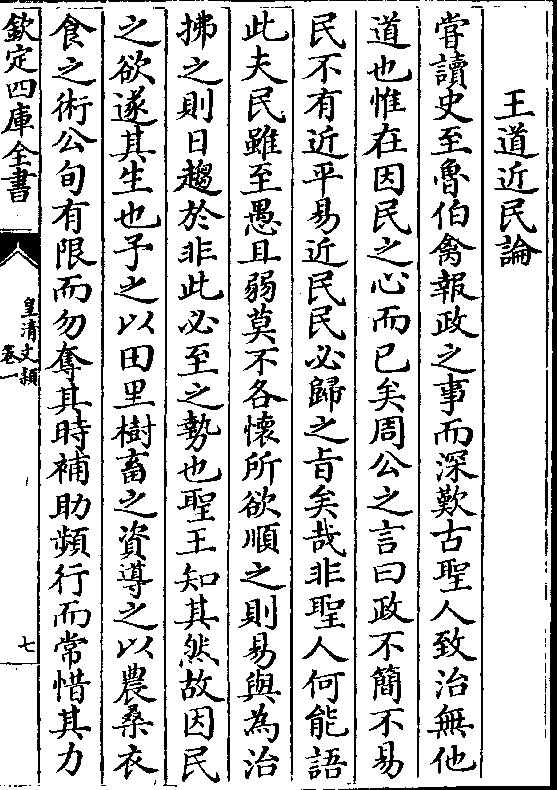 王道近民論
嘗讀史至魯伯禽報政之事而深歎古聖人致治無他
道也惟在因民之心而已矣周公之言曰政不簡不易
民不有近平易近民民必歸之旨矣哉非聖人何能語
此夫民雖至愚且弱莫不各懷所欲順之則易與為治
拂之則日趨於非此必至之勢也聖王知其然故因民
之欲遂其生也予之以田里樹畜之資導之以農桑衣
食之術公旬有限而勿奪其時補助頻行而常惜其力
欽定四庫全書
皇清文穎
卷一
七